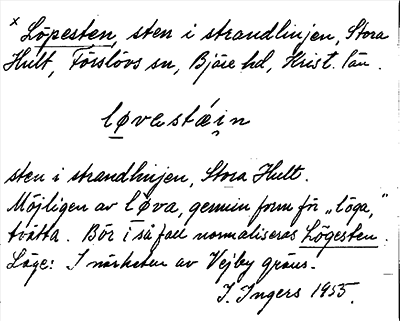 x Löpesten, sten i strandlinjen, Stora
Hult, Förslövs sn, Bjäre hd, Krist. län.
løvestǽi̯n
sten i strandlinjen, Stora Hult.
Möjligen av løva, genuin form för „löga,”
tvätta. Bör i så fall normaliseras Lögesten.
Läge: I närheten av Vejby gräns.
I. Ingers 1955.